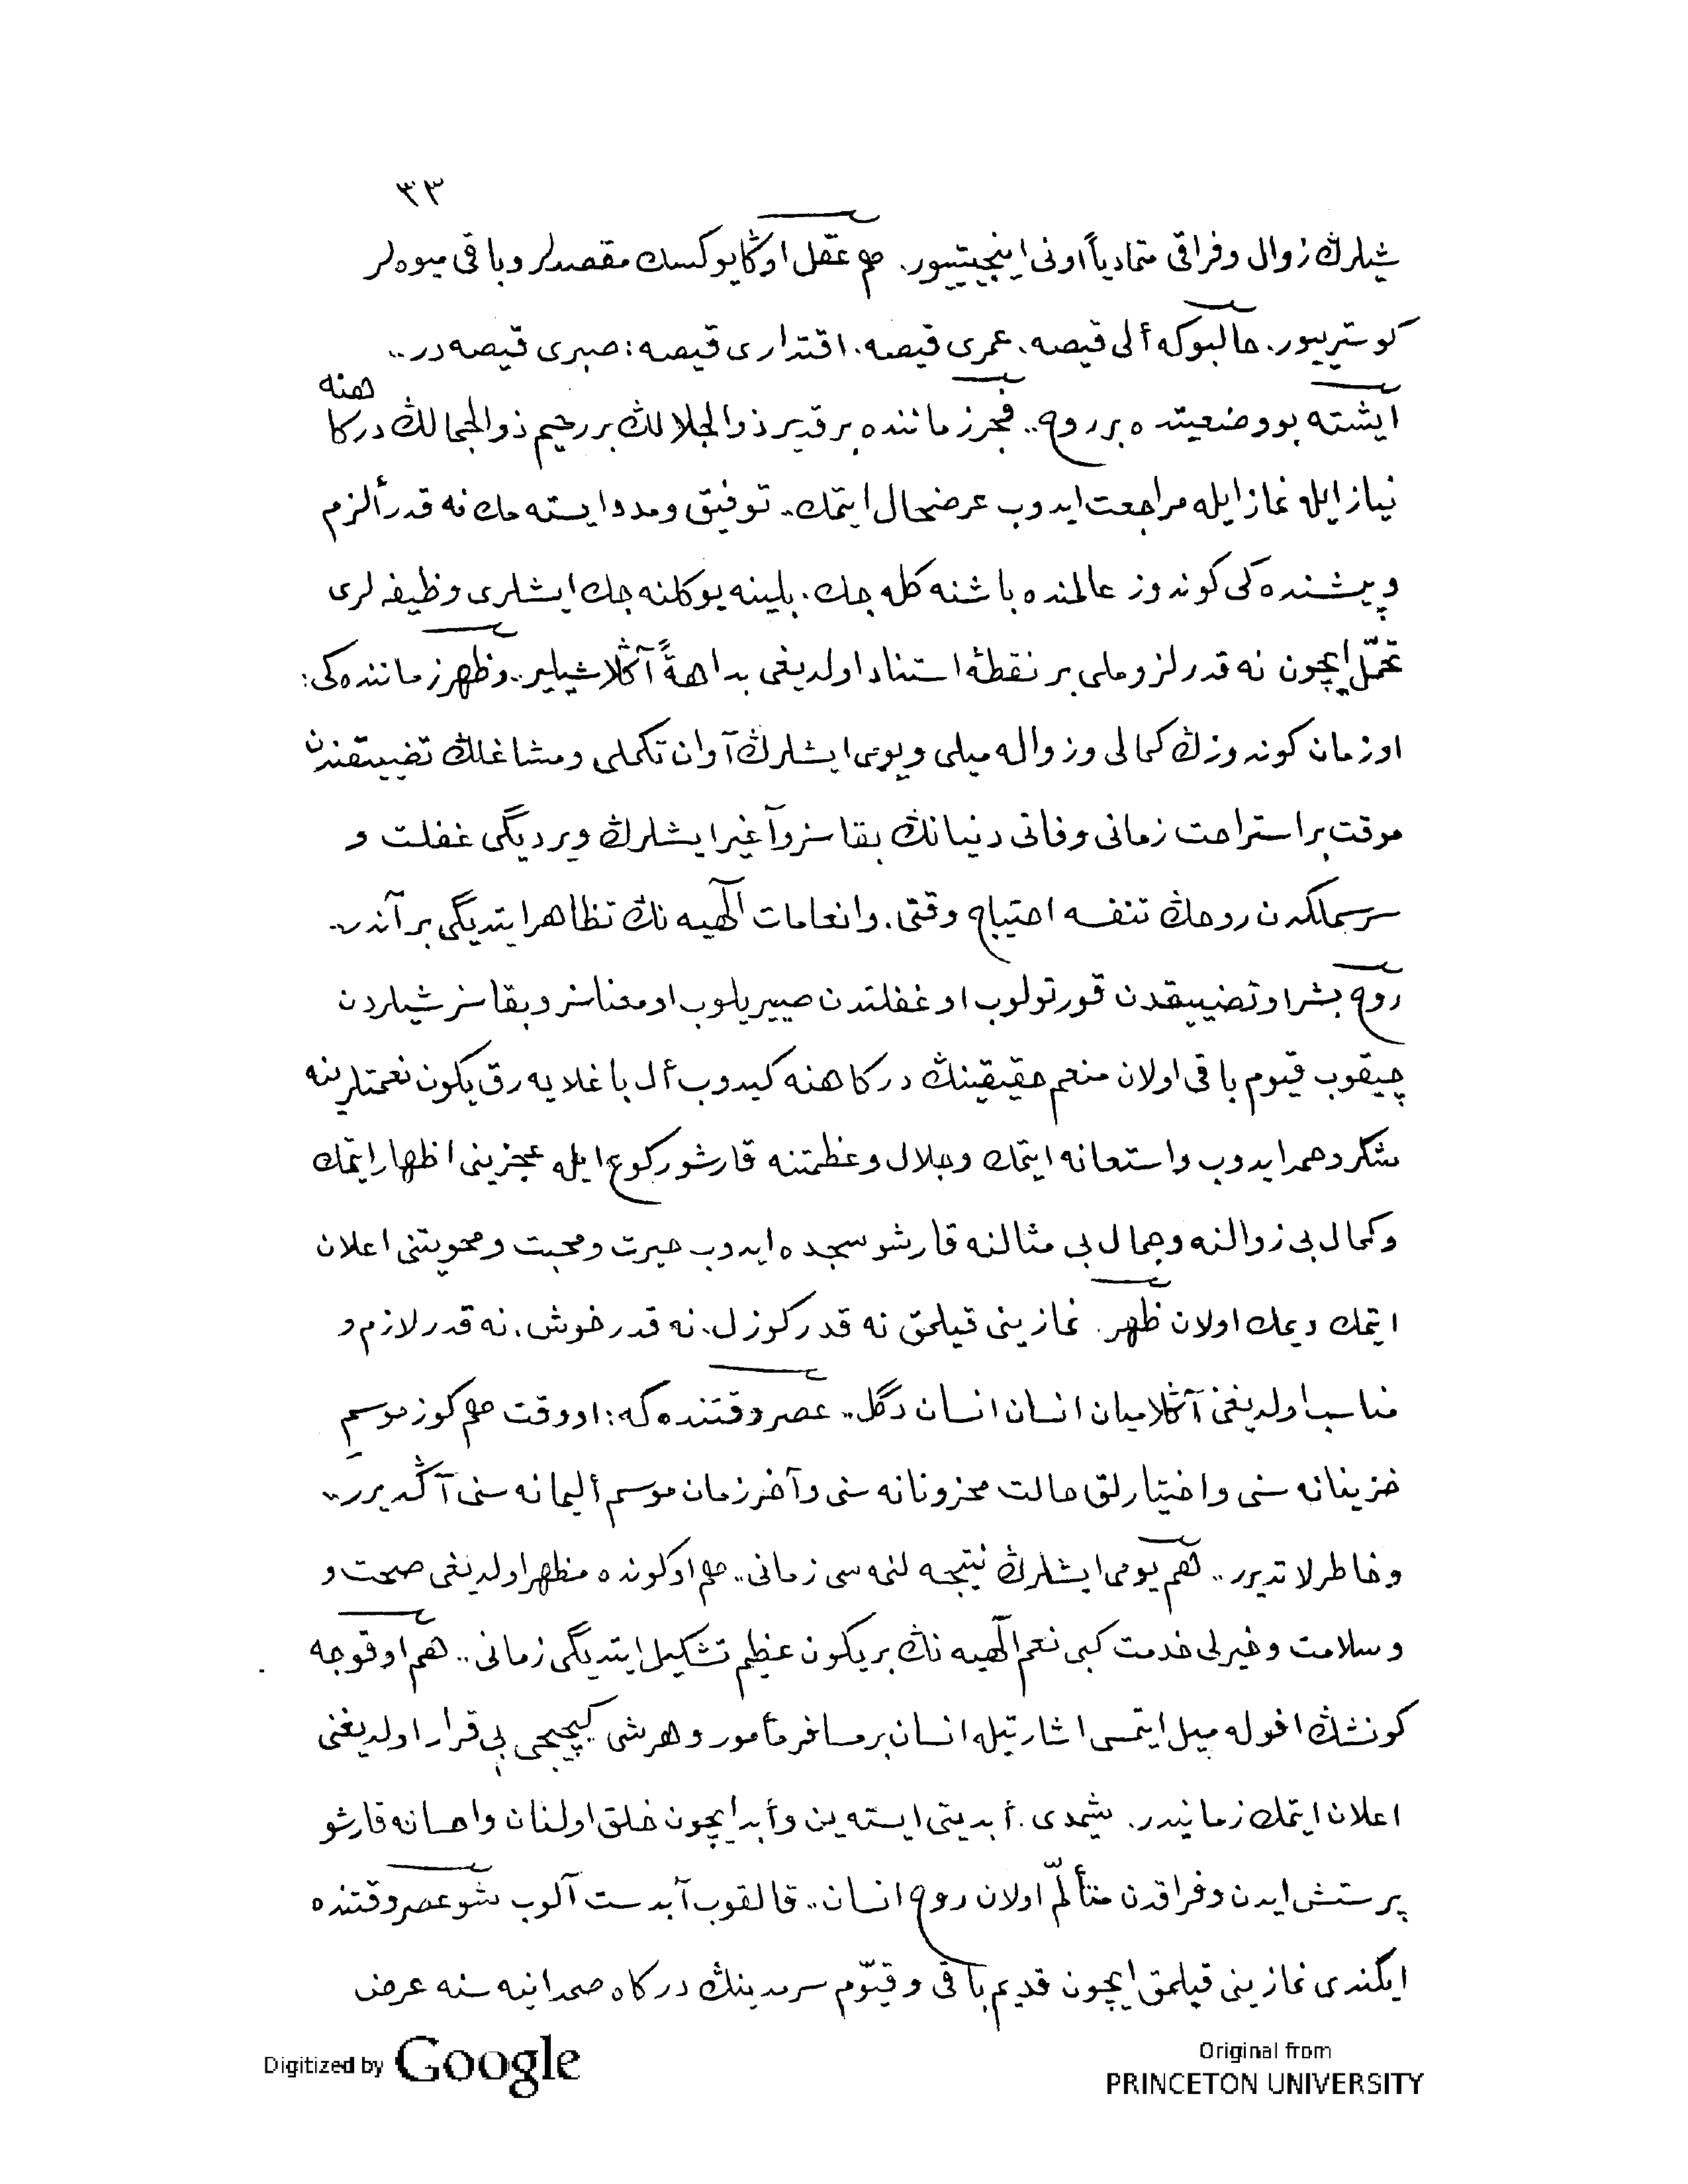 ٣٣
شیلرڭ زوال و فراقی متمادیاً اونی اینجیتییور. هم عقل اوڭا یوكسك مقصدلر و باقی میوه‌لر
كوستریيور. حالبوكه ألی قیصه. عمری قیصه. اقتداری قیصه: صبری قیصه در..
ایشته بو وضعیتده بر روح.. فجر زماننده بر قدیر ذوالجلالڭ بر رحیم ذوالجمالڭ دركاهنه
نیاز ایله نماز ایله مراجعت ایدوب عرضحال ایتمك.. توفیق و مدد ایسته مك نه قدر ألزم
و پیشنده كی كوندوز عالمنده باشنه كله جك. بلینه یوكلنه جك ایشلری وظیفه لری
تحمّل ایچون نه قدر لزوملی بر نقطۀ استناد اولدیغی بداهةً آڭلاشیلیر.. و ظهر زماننده كی:
او زمان كوندوزڭ كمالی و زواله میلی و یومی ایشلرڭ آوان تكملی و مشاغلڭ تضییقندن
موقت بر استراحت زمانی و فانی دنیانڭ بقاسز و آغیر ایشلرڭ ویردیگی غفلت و
سرسملكدن روحڭ تنفسه احتیاج وقتی. و انعامات الٓهیه نڭ تظاهر ایتدیگی بر آندر..
روح بشر او تضییقدن قورتولوب او غفلتدن صییریلوب او معناسز و بقاسز شیلردن
چیقوب قیوم باقی اولان منعم حقیقینڭ دركاهنه كیدوب أل باغلایه رق یكون نعمتلرینه
شكر و حمد ایدوب و استعانه ایتمك و جلال و عظمتنه قارشو ركوع ایله عجزینی اظهار ایتمك
و كمال بی زوالنه و جمال بی مثالنه قارشو سجده ایدوب حیرت و محبت و محویتنی اعلان
ایتمك دیمك اولان ظهر. نمازینی قیلمق نه قدر كوزل. نه قدر خوش. نه قدر لازم و
مناسب اولدیغنی آڭلامیان انسان انسان دگل.. عصر وقتنده كه: او وقت هم كوز موسم
حزینانه سنی و اختیارلق حالت محزونانه سنی و آخرزمان موسم ألیمانه سنی آڭدیرر..
و خاطرلاتدیرر.. هم یومی ایشلرڭ نتیجه لنمه سی زمانی.. هم او كونده مظهر اولدیغی صحت و
و سلامت و خیرلی خدمت كبی نعم الٓهیه نڭ بر یكون عظیم تشكیل ایتدیگی زمانی.. هم او قوجه
كونشڭ افوله میل ایتمسی اشارتیله انسان بر مسافر مأمور و هر شی كیچیجی بی قرار اولدیغنی
اعلان ایتمك زمانیدر. شیمدی. أبدیتی ایسته ین و أبد ایچون خلق اولنان و احسانه قارشو
پرستش ایدن و فراقدن متألّم اولان روح انسان.. قالقوب آبدست آلوب شو عصر وقتنده
ایكندی نمازینی قیلمق ایچون قدیم باقی و قیّوم سرمدینڭ دركاه صمدانیه سنه عرض
Digitized by Google
Original from
PRINCETON UNIVERSITY